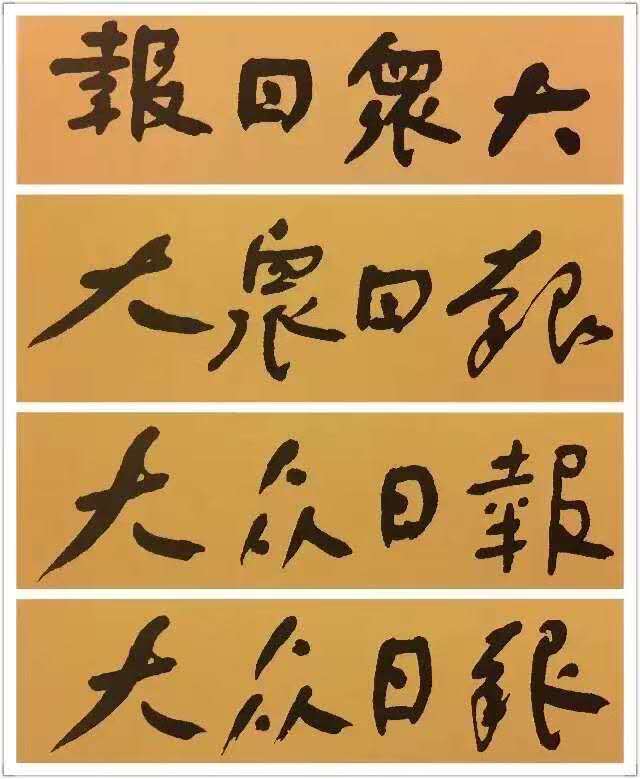 大眾日報
大眾日報
大众日報
大众日報